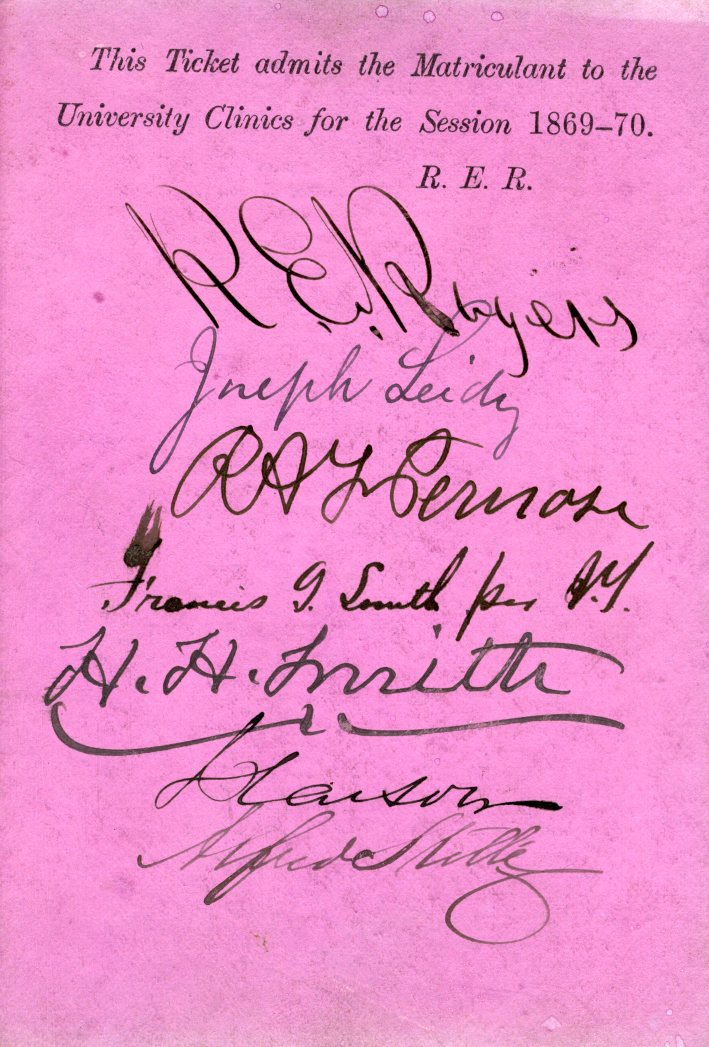 This Ticket admits the Matriculant to the
University Clinics for the Session 1869–70.
R. E. R.
R. E. Rogers
Joseph Leidy
R A F Penrose
Francis G. Smith per
H. H. Smith
Alfred Stille